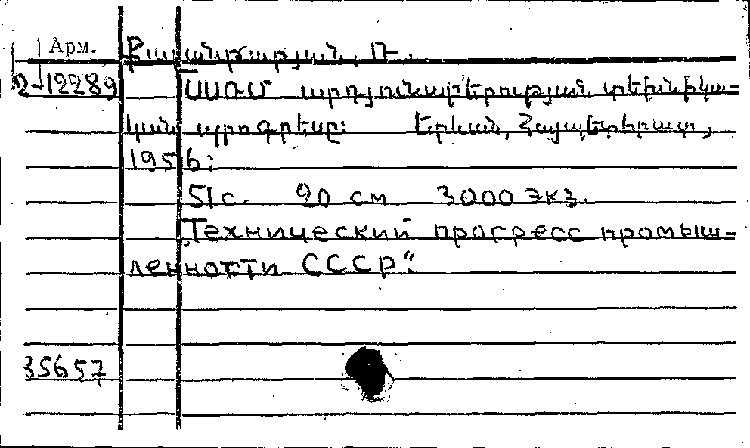 Арм. Քալանթարյան, Դ.
2-12289 ՍՍՌՄ արդյունաբերության տեխնիկա-
կան պրոգրեսը: Երևան, Հայպետհրատ,
1956:
51 с. 20 см 3000 экз.
„Технический прогресс промыш-
ленности СССР“.
35657